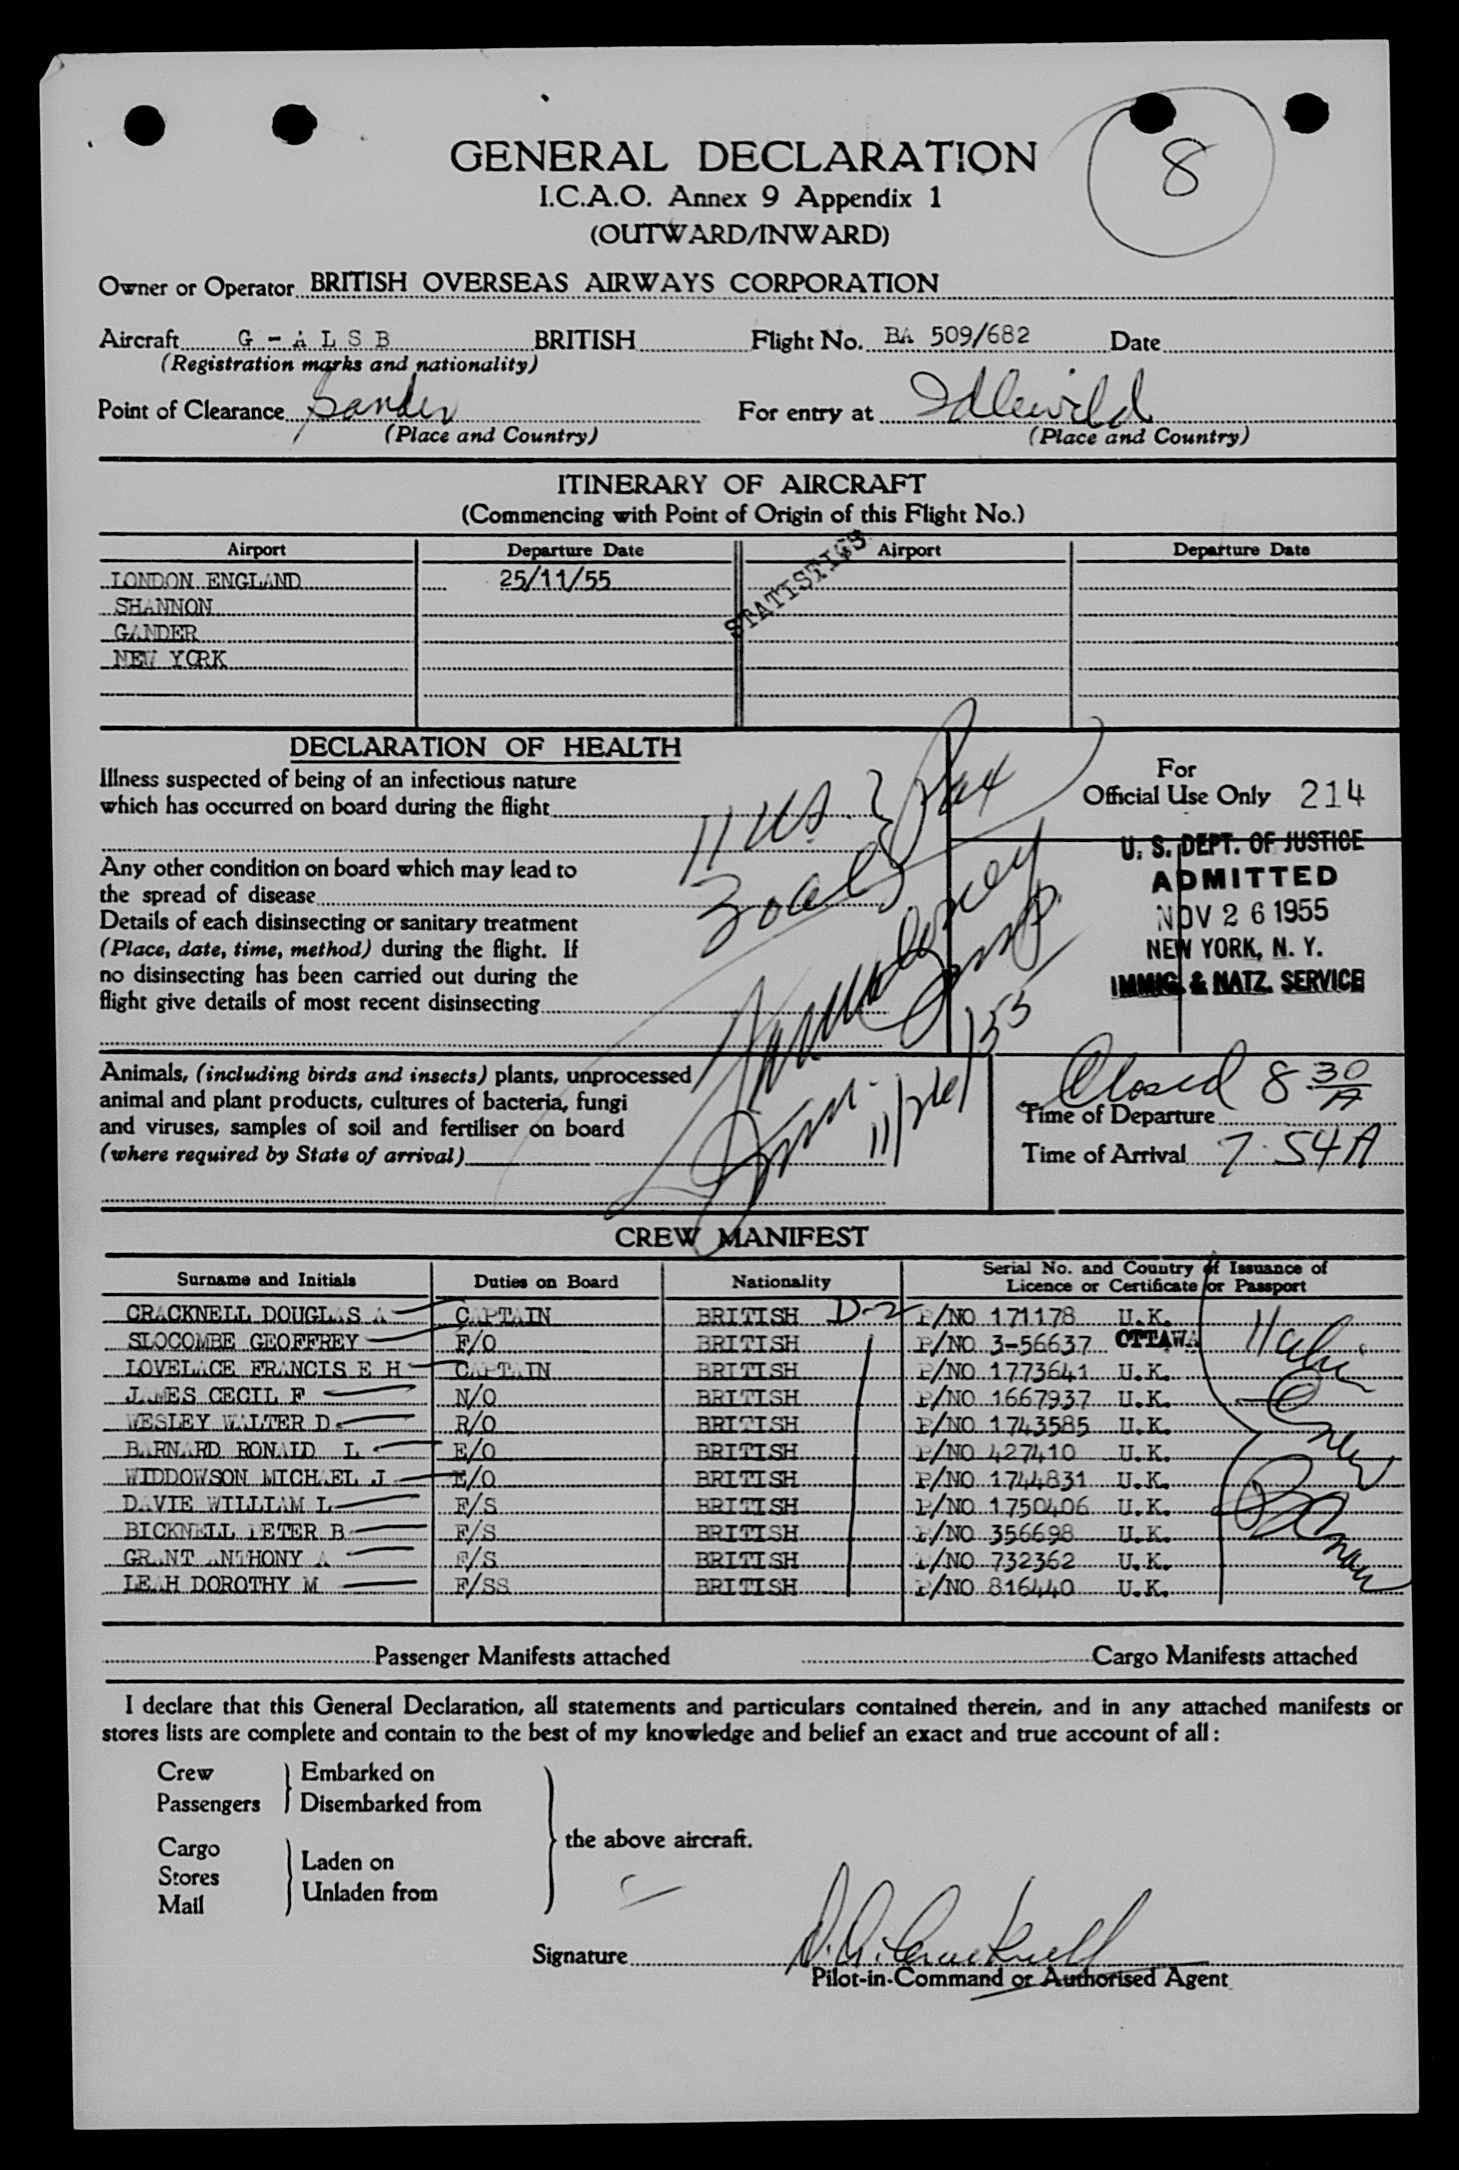 8
GENERAL DECLARATION
I.C.A.O. Annex 9 Appendix 1
(OUTWARD/INWARD)
Owner or Operator BRITISH OVERSEAS AIRWAYS CORPORATION
Aircraft G - A L S B BRITISH Flight No. BA 509/682 Date
(Registration marks and nationality)
Point of Clearance Gander For entry at Idlewild
(Place and Country) (Place and Country)
ITINERARY OF AIRCRAFT
(Commencing with Point of Origin of this Flight No.)
Airport Departure Date Airport Departure Date
LONDON ENGLAND 25/11/55
SHANNON
GANDER
NEW YORK
STATISTICS
DECLARATION OF HEALTH
Illness suspected of being of an infectious nature
which has occurred on board during the flight
11 US } Pax
For
Official Use Only 214
U. S. DEPT. OF JUSTICE
ADMITTED
NOV 26 1955
NEW YORK, N. Y.
IMMIG. & NATZ. SERVICE
Any other condition on board which may lead to
the spread of disease
Details of each disinsecting or sanitary treatment
(Place, date, time, method) during the flight. If
no disinsecting has been carried out during the
flight give details of most recent disinsecting
11/26/55
Animals, (including birds and insects) plants, unprocessed
animal and plant products, cultures of bacteria, fungi
and viruses, samples of soil and fertiliser on board
(where required by State of arrival)
Closed 8 30/A
Time of Departure
Time of Arrival 7.54A
CREW MANIFEST
Surname and Initials Duties on Board Nationality Serial No. and Country of Issuance of Licence or Certificate or Passport
CRACKNELL DOUGLAS A CAPTAIN BRITISH D-2 P/NO 171178 U.K.
SLOCOMBE GEOFFREY F/O BRITISH P/NO 3-56637 OTTAWA
LOVELACE FRANCIS E H CAPTAIN BRITISH P/NO 1773641 U.K.
JAMES CECIL F N/O BRITISH P/NO 1667937 U.K.
WESLEY WALTER D R/O BRITISH P/NO 1743585 U.K.
BARNARD RONALD L E/O BRITISH P/NO 427410 U.K.
WIDDOWSON MICHAEL J E/O BRITISH P/NO 1744831 U.K.
DAVIE WILLIAM L F/S BRITISH P/NO 1750406 U.K.
BICKNELL PETER B F/S BRITISH P/NO 356698 U.K.
GRANT ANTHONY A F/S BRITISH P/NO 732362 U.K.
LEAH DOROTHY M F/SS BRITISH P/NO 816440 U.K.
Crew
Passenger Manifests attached Cargo Manifests attached
I declare that this General Declaration, all statements and particulars contained therein, and in any attached manifests or
stores lists are complete and contain to the best of my knowledge and belief an exact and true account of all:
Crew } Embarked on
Passengers } Disembarked from
the above aircraft.
Cargo
Stores } Laden on
Mail } Unladen from
Signature D.A. Cracknell
Pilot-in-Command or Authorised Agent